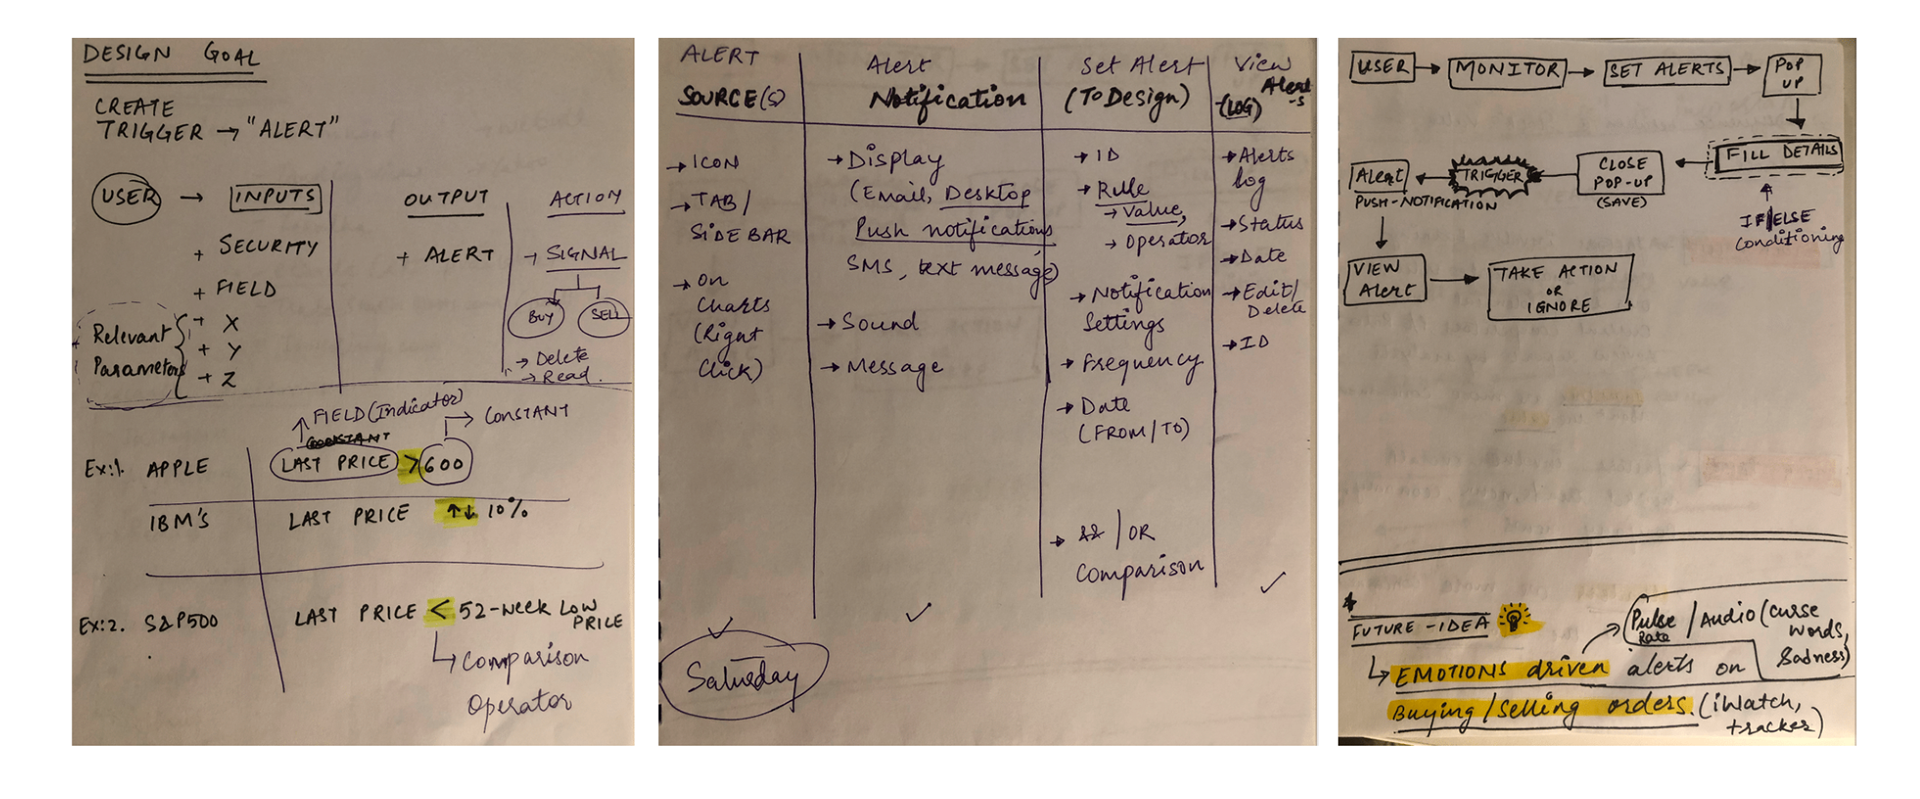 DESIGN GOAL
CREATE
TRIGGER → "ALERT"
USER → INPUTS
+ SECURITY
+ FIELD
+ X
+ Y
+ Z
Relevant
Parameters
OUTPUT
+ ALERT
ACTION
→ SIGNAL
BUY SELL
→ Delete
→ Read.
FIELD (Indicator)
→ CONSTANT
CONSTANT
Ex:1. APPLE LAST PRICE > 600
IBM'S LAST PRICE ↑↓ 10%
Ex:2. S&P500 LAST PRICE < 52-WEEK LOW
PRICE
Comparison
Operator
ALERT
SOURCE(S)
→ ICON
→ TAB/
SIDE BAR
→ On
Charts
(Right
Click)
Saturday
Alert
Notification
→ Display
(Email, Desktop
Push notifications
SMS, text message)
→ Sound
→ Message
Set Alert
(To Design)
→ ID
→ Rule
→ Value,
→ Operator
→ Notification
Settings
→ Frequency
→ Date
(FROM/TO)
→ && / OR
Comparison
View
Alert
-s
(LOG)
→ Alerts
log
→ Status
→ Date
→ Edit/
Delete
→ ID
USER → MONITOR → SET ALERTS → POP
UP
FILL DETAILS
IF/ELSE
Conditioning
CLOSE
POP-UP
(SAVE)
TRIGGER
Alert
PUSH-NOTIFICATION
VIEW
Alert
TAKE ACTION
OR
IGNORE
* FUTURE-IDEA
Pulse
Rate
/ AUDIO (curse
words,
Sadness)
EMOTIONS driven alerts on
Buying/Selling orders. (iWatch,
tracker)